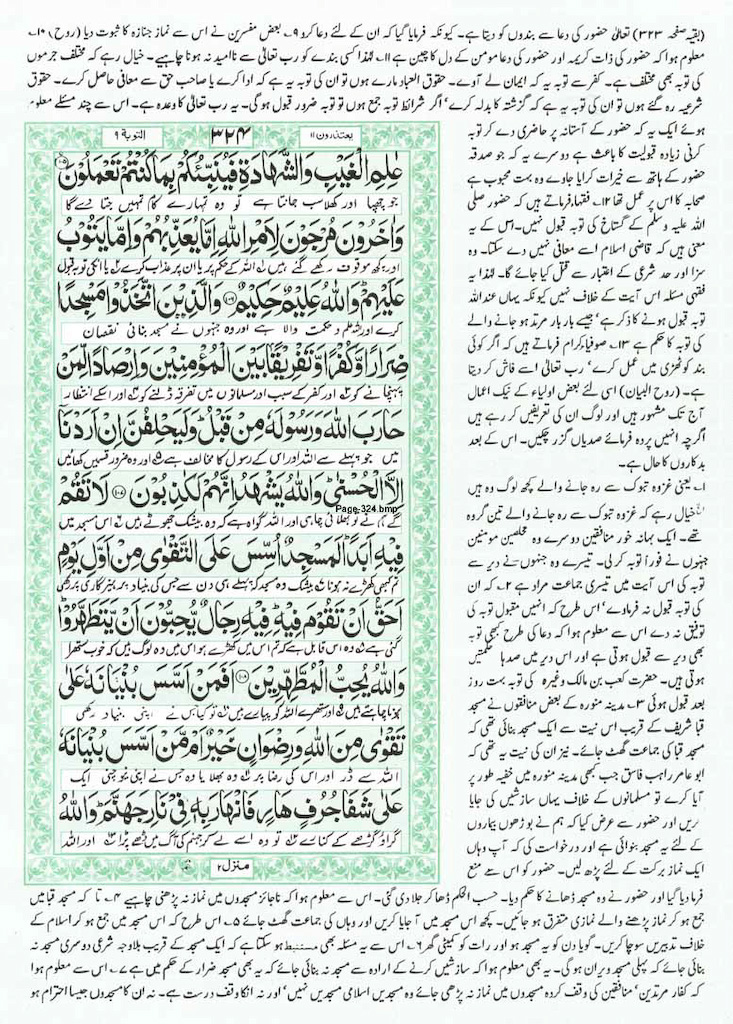 (بقیہ صفحہ ۳۲۳) تعالیٰ حضور کی دعا سے بندوں کو دیتا ہے۔ کیونکہ فرمایا گیا کہ ان کے لئے دعا کرو ۹۔ بعض مفسرین نے اس سے نماز جنازہ کا ثبوت دیا (روح) ۱۰۔
معلوم ہوا کہ حضور کی ذات کریمہ اور حضور کی دعا مومن کے دل کا چین ہے ۱۱۔ لہٰذا کسی بندے کو رب تعالیٰ سے ناامید نہ ہونا چاہیے۔ خیال رہے کہ مختلف جرموں
کی توبہ بھی مختلف ہے۔ کفر سے توبہ یہ کہ ایمان لے آوے۔ حقوق العباد مارے ہوں تو ان کی توبہ یہ ہے کہ ادا کرے یا صاحب حق سے معافی حاصل کرے۔ حقوق
شرعیہ رہ گئے ہوں تو ان کی توبہ یہ ہے کہ گزشتہ کا بدلہ کرے، اگر شرائط توبہ جمع ہوں تو توبہ ضرور قبول ہوگی۔ یہ رب تعالیٰ کا وعدہ ہے۔ اس سے چند مسئلے معلوم
ہوئے ایک یہ کہ حضور کے آستانہ پر حاضری دے کر توبہ
کرنی زیادہ قبولیت کا باعث ہے دوسرے یہ کہ جو صدقہ
حضور کے ہاتھ سے خیرات کرایا جاوے وہ بہت محبوب ہے
صحابہ کا اس پر عمل تھا ۱۲۔ فقہاء فرماتے ہیں کہ حضور صلی
اللہ علیہ وسلم کے گستاخ کی توبہ قبول نہیں۔ اس کے یہ
معنی ہیں کہ قاضی اسلام اسے معافی نہیں دے سکتا۔ وہ
سزا اور حد شرعی کے اعتبار سے قتل کیا جائے گا۔ لہٰذا یہ
فقہی مسئلہ اس آیت کے خلاف نہیں کیونکہ یہاں عند اللہ
توبہ قبول ہونے کا ذکر ہے، جیسے بار بار مرتد ہو جانے والے
کی توبہ کا حکم ہے ۱۳۔ صوفیاء کرام فرماتے ہیں کہ اگر کوئی
بند کوٹھڑی میں عمل کرے، رب تعالیٰ اسے فاش کر دیتا
ہے۔ (روح البیان) اسی لئے بعض اولیاء کے نیک اعمال
آج تک مشہور ہیں اور لوگ ان کی تعریفیں کر رہے ہیں
اگرچہ انہیں پردہ فرمائے صدیاں گزر چکیں۔ اس کے بعد
بدکاروں کا حال ہے۔
۱۔ یعنی غزوہ تبوک سے رہ جانے والے کچھ لوگ وہ ہیں
خیال رہے کہ غزوہ تبوک سے رہ جانے والے تین گروہ
تھے۔ ایک بہانہ خور منافقین دوسرے وہ مخلصین مومنین
جنہوں نے فوراً توبہ کر لی۔ تیسرے وہ جنہوں نے دیر سے
توبہ کی اس آیت میں تیسری جماعت مراد ہے ۲۔ کہ ان
کی توبہ قبول نہ فرماوے، اس طرح کہ انہیں مقبول توبہ کی
توفیق نہ دے اس سے معلوم ہوا کہ دعا کی طرح کبھی توبہ
بھی دیر سے قبول ہوتی ہے اور اس دیر میں صدہا حکمتیں
ہوتی ہیں۔ حضرت کعب بن مالک وغیرہ کی توبہ بہت روز
بعد قبول ہوئی ۳۔ مدینہ منورہ کے بعض منافقوں نے مسجد
قبا شریف کے قریب اس نیت سے ایک مسجد بنائی تھی کہ
مسجد قبا کی جماعت گھٹ جائے۔ نیز ان کی نیت یہ تھی کہ
ابو عامر راہب فاسق جب کبھی مدینہ منورہ میں خفیہ طور پر
آیا کرے تو مسلمانوں کے خلاف یہاں سازشیں کی جایا
کریں اور حضور سے عرض کیا کہ ہم نے بوڑھوں بیماروں
کے لئے یہ مسجد بنوائی ہے اور درخواست کی کہ آپ وہاں
ایک نماز برکت کے لئے پڑھ لیں۔ حضور کو اس سے منع
یعتذرون ۱۱
۳۲۴
التوبۃ ۹
عٰلِمِ الْغَیْبِ وَالشَّہَادَۃِ فَیُنَبِّئُکُمْ بِمَا کُنْتُمْ تَعْمَلُوْنَ ﴿۱۰۵﴾
جو چھپا اور کھلا سب جانتا ہے تو وہ تمہارے کام تمہیں جتا دے گا
وَاٰخَرُوْنَ مُرْجَوْنَ لِاَمْرِ اللّٰہِ اِمَّا یُعَذِّبُہُمْ وَاِمَّا یَتُوْبُ
اور کچھ موقوف رکھے گئے ہیں اللہ کے حکم پر یا ان پر عذاب کرے یا ان کی توبہ قبول
عَلَیْہِمْ وَاللّٰہُ عَلِیْمٌ حَکِیْمٌ ﴿۱۰۶﴾ وَالَّذِیْنَ اتَّخَذُوْا مَسْجِدًا
کرے اور اللہ علم و حکمت والا ہے اور وہ جنہوں نے مسجد بنائی نقصان
ضِرَارًا وَّکُفْرًا وَّتَفْرِیْقًا بَیْنَ الْمُؤْمِنِیْنَ وَاِرْصَادًا لِّمَنْ
پہنچانے کو اور کفر کے سبب اور مسلمانوں میں تفرقہ ڈالنے کو اور اسکے انتظار
حَارَبَ اللّٰہَ وَرَسُوْلَہٗ مِنْ قَبْلُ وَلَیَحْلِفُنَّ اِنْ اَرَدْنَا
میں جو پہلے سے اللہ اور اس کے رسول کا مخالف ہے اور وہ ضرور قسمیں کھائیں
اِلَّا الْحُسْنٰی وَاللّٰہُ یَشْہَدُ اِنَّہُمْ لَکٰذِبُوْنَ ﴿۱۰۷﴾ لَا تَقُمْ
گے ہم نے تو بھلائی چاہی اور اللہ گواہ ہے کہ وہ بیشک جھوٹے ہیں اس مسجد میں
Page-324.bmp
فِیْہِ اَبَدًا لَمَسْجِدٌ اُسِّسَ عَلَی التَّقْوٰی مِنْ اَوَّلِ یَوْمٍ
تم کبھی کھڑے نہ ہونا بیشک وہ مسجد کہ پہلے ہی دن سے جس کی بنیاد پرہیزگاری پر رکھی
اَحَقُّ اَنْ تَقُوْمَ فِیْہِ فِیْہِ رِجَالٌ یُّحِبُّوْنَ اَنْ یَّتَطَہَّرُوْا
گئی ہے وہ اس قابل ہے کہ تم اس میں کھڑے ہو اس میں وہ لوگ ہیں کہ خوب ستھرا
وَاللّٰہُ یُحِبُّ الْمُطَّہِّرِیْنَ ﴿۱۰۸﴾ اَفَمَنْ اَسَّسَ بُنْیَانَہٗ عَلٰی
ہونا چاہتے ہیں اور ستھرے اللہ کو پیارے ہیں تو کیا جس نے اپنی بنیاد رکھی
تَقْوٰی مِنَ اللّٰہِ وَرِضْوَانٍ خَیْرٌ اَمْ مَّنْ اَسَّسَ بُنْیَانَہٗ
اللہ سے ڈر اور اس کی رضا پر وہ بھلا یا وہ جس نے اپنی نیو چنی ایک
عَلٰی شَفَا جُرُفٍ ہَارٍ فَانْہَارَ بِہٖ فِیْ نَارِ جَہَنَّمَ وَاللّٰہُ
گراؤ گڑھے کے کنارے تو وہ اسے لے کر جہنم کی آگ میں ڈھے پڑا اور اللہ
منزل ۲
فرما دیا گیا اور حضور نے وہ مسجد ڈھانے کا حکم دیا۔ حسب الحکم ڈھا کر جلا دی گئی۔ اس سے معلوم ہوا کہ ناجائز مسجدوں میں نماز نہ پڑھنی چاہیے ۴۔ تا کہ مسجد قبا میں
جمع ہو کر نماز پڑھنے والے نمازی متفرق ہو جائیں۔ کچھ اس مسجد میں آ جایا کریں اور وہاں کی جماعت گھٹ جائے ۵۔ اس طرح کہ اس مسجد میں جمع ہو کر اسلام کے
خلاف تدبیریں سوچا کریں۔ گویا دن کو یہ مسجد ہو اور رات کو کمیٹی گھر ۶۔ اس سے یہ مسئلہ بھی مستنبط ہو سکتا ہے کہ ایک مسجد کے قریب بلاوجہ شرعی دوسری مسجد نہ
بنائی جائے کہ پہلی مسجد ویران ہو گی۔ یہ بھی معلوم ہوا کہ سازشیں کرنے کے ارادہ سے مسجد نہ بنائی جائے کہ یہ بھی مسجد ضرار کے حکم میں ہے ۷۔ اس سے معلوم ہوا
کہ کفار مرتدین، منافقین کی وقف کردہ مسجدوں میں نماز نہ پڑھی جائے وہ مسجدیں اسلامی مسجدیں نہیں، اور نہ انکا وقف درست ہے۔ نہ ان کا مسجدوں جیسا احترام ہو